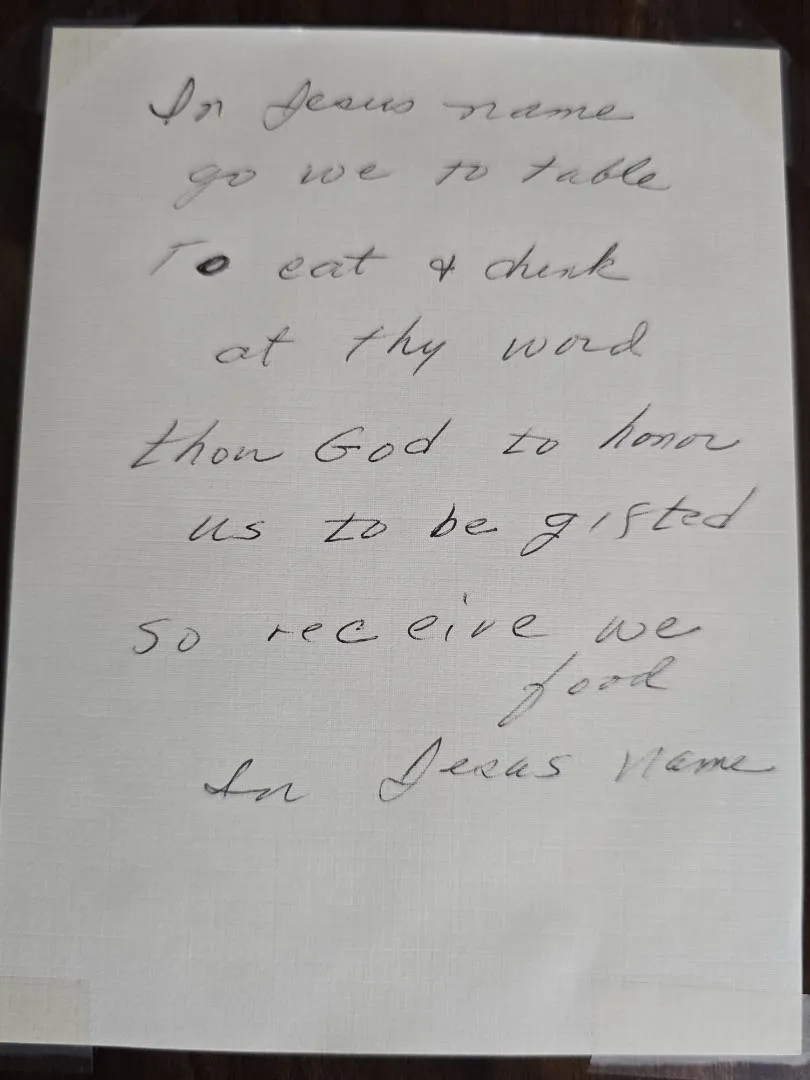 In Jesus name
go we to table
To eat & drink
at thy word
thou God to honor
us to be gifted
so receive we
food
In Jesus name